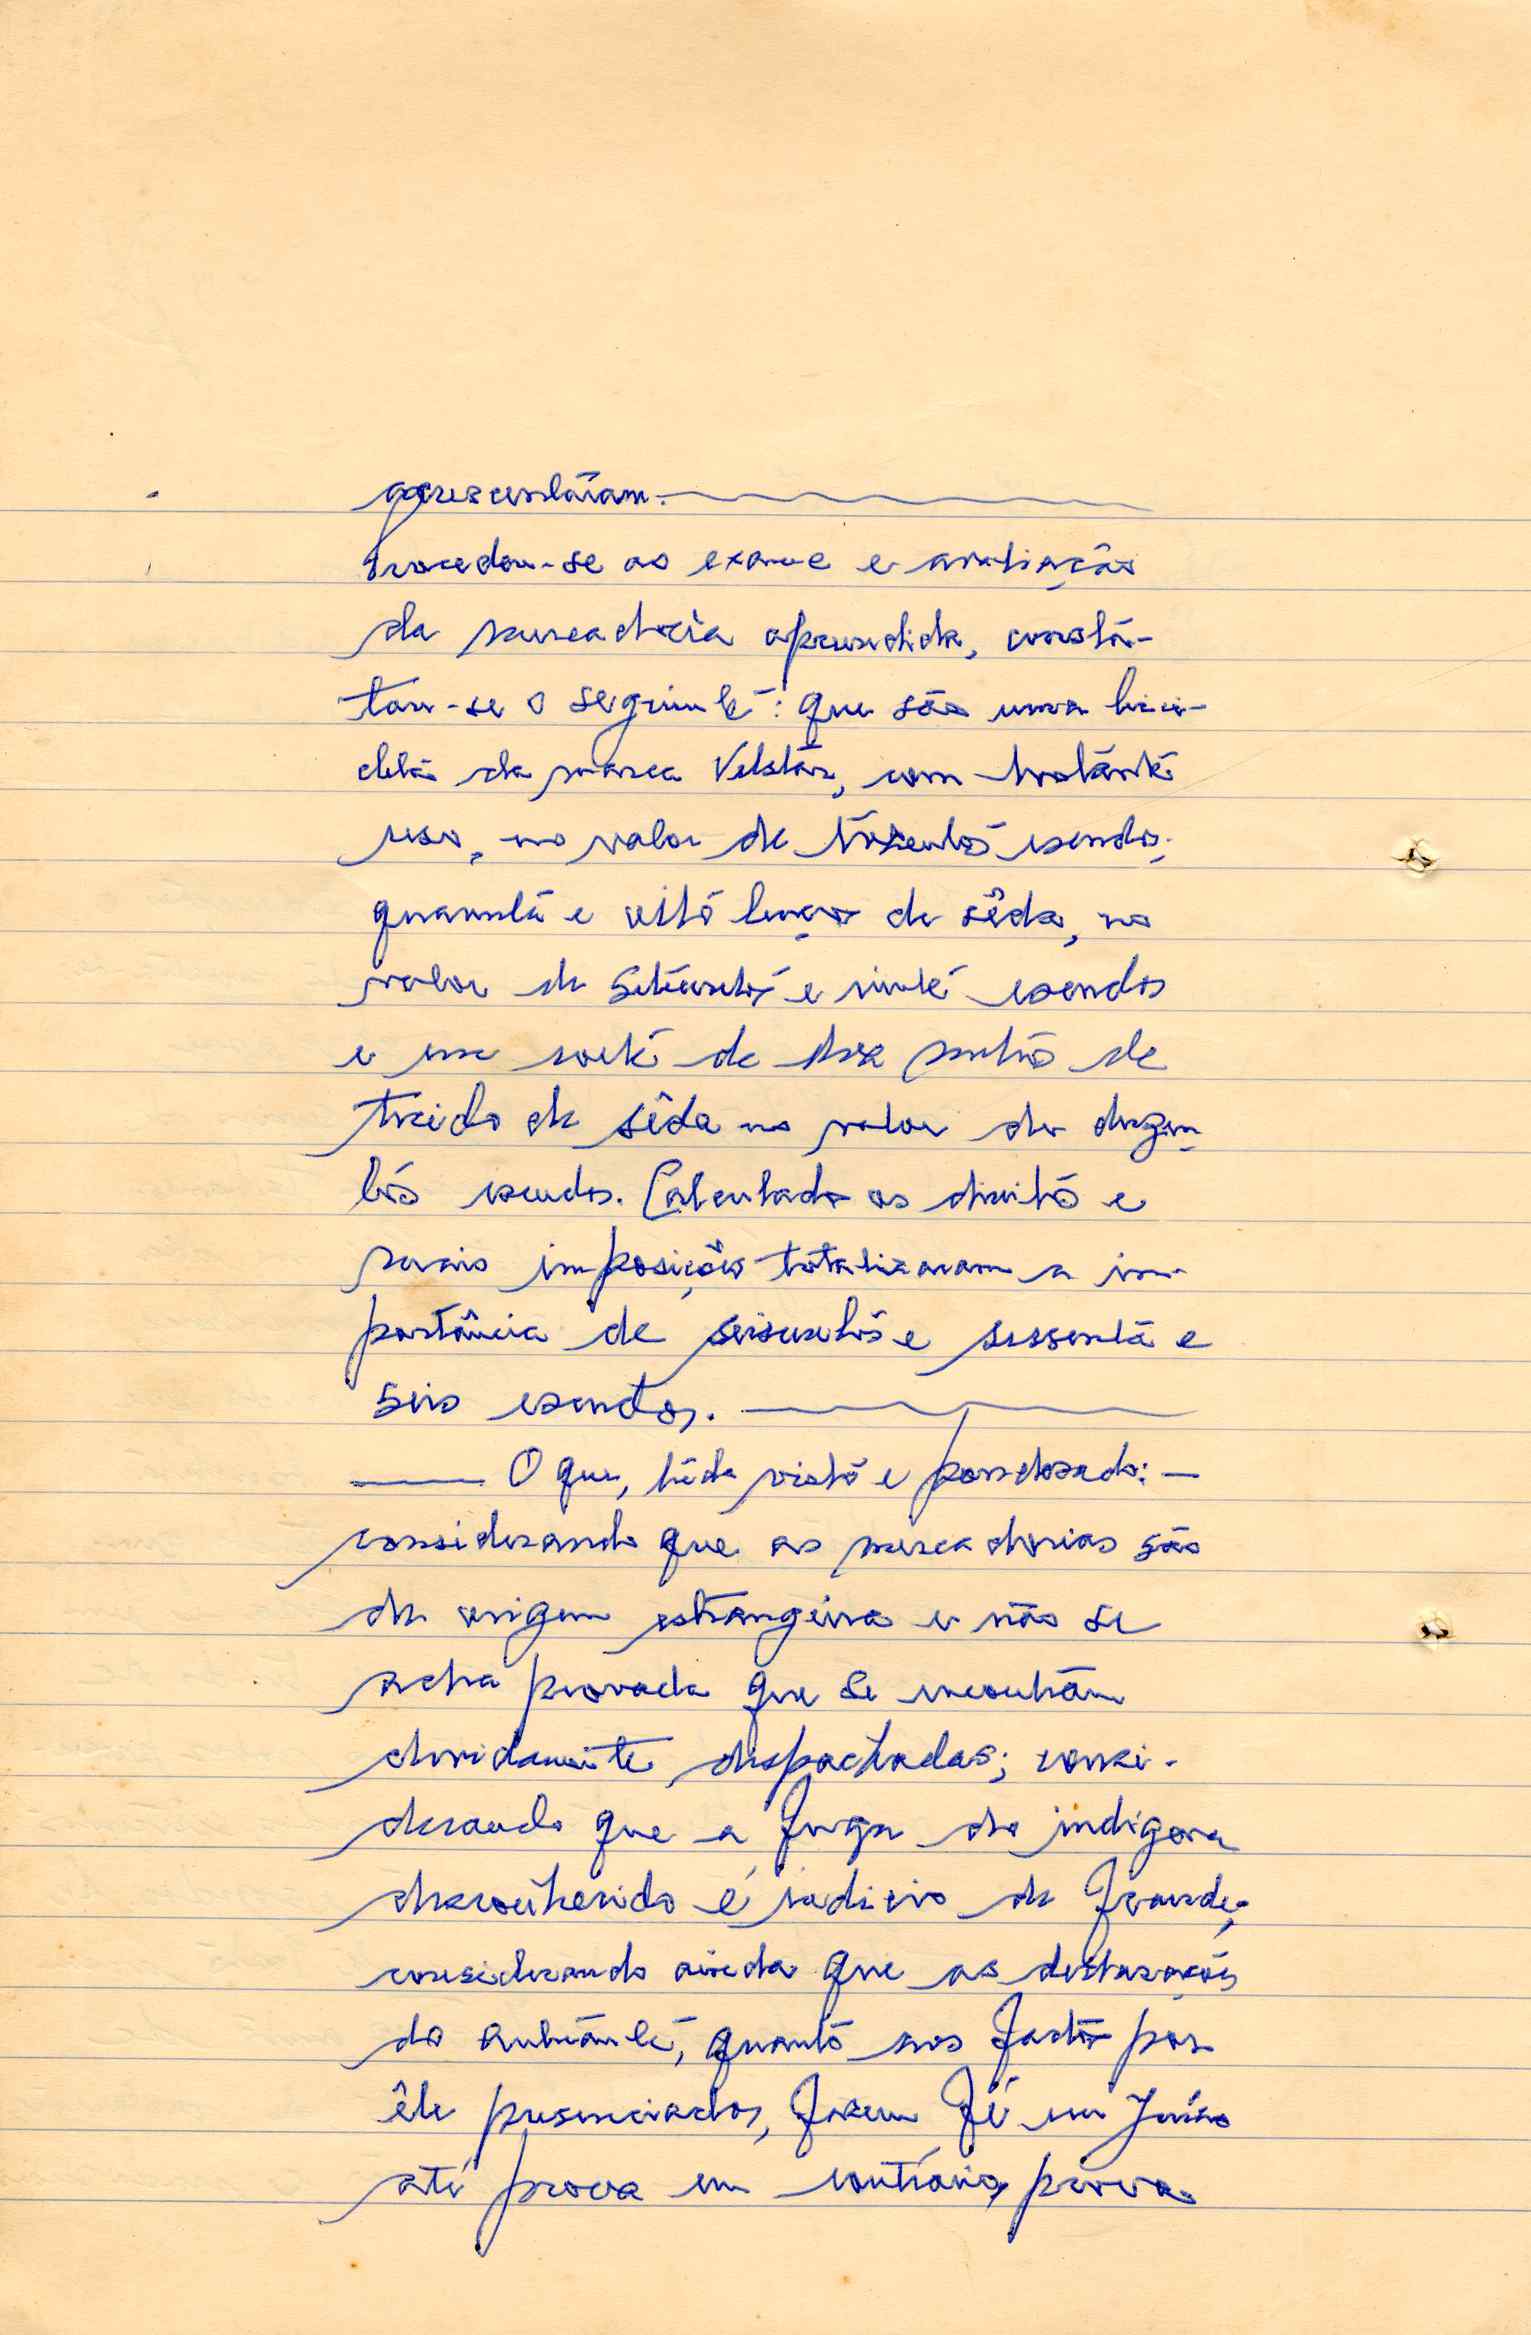 acrescentaram.
Procedeu-se ao exame e avaliação
da mercadoria apreendida, constá-
tou-se o seguinte: que são uma bici-
cleta da marca Velstar, com bastante
uso, no valor de trezentos escudos;
quarenta e oito lenços de sêda, no
valor de setecentos e vinte escudos
e um corte de dez metros de
tecido de sêda no valor de duzen-
tos escudos. Calculados os direitos e
mais imposições totalizaram a im-
portância de seiscentos e sessenta e
seis escudos.
O que, tudo visto e ponderado:
considerando que as mercadorias são
de origem estrangeira e não se
acha provada que se encontram
devidamente despachadas; consi-
derando que a fuga do indígena
desconhecido é indicio de fraude;
considerando ainda que as declarações
do autuante, quanto aos factos por
êle presenciados, fazem fé em Juízo
até prova em contrário, prova